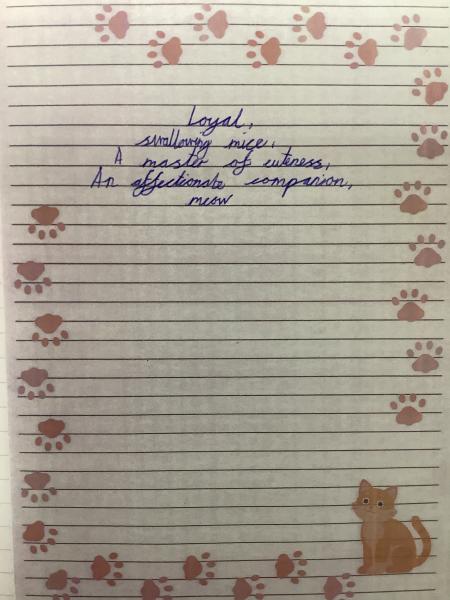 Loyal,
swallowing mice,
A master of cuteness,
An affectionate companion,
meow